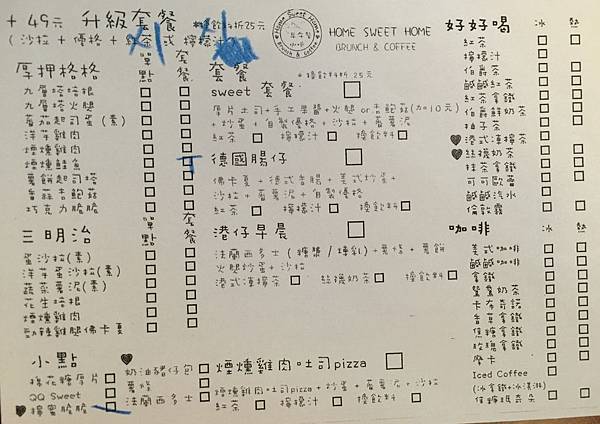 +49元 升級套餐
(沙拉+優格+紅茶 或 檸檬汁
換飲料折25元
HOME SWEET HOME
BRUNCH & COFFEE
厚押格格
單點
套餐
九層塔培根
九層塔火腿
蕃茄起司蛋(素)
洋芋雞肉
煙燻雞肉
煙燻鮭魚
薯餅起司塔
蒜香杏鮑菇
巧克力脆脆
三明治
單點
套餐
蛋沙拉(素)
洋芋蛋沙拉(素)
蔬菜薯泥(素)
花生培根
煙燻雞肉
勁辣雞腿佛卡夏
小點
棉花糖厚片
QQ Sweet
檸蜜脆脆
奶油豬仔包
薯條
法蘭西多士
套餐
+換飲料折25元
sweet 套餐
厚片土司+手工果醬+火腿or杏鮑菇(加10元)
+炒蛋+自製優格+沙拉+蕃薯泥
紅茶 檸檬汁 換飲料
德國腸仔
佛卡夏+德式香腸+美式炒蛋+
沙拉+蕃薯泥+自製優格
紅茶 檸檬汁 換飲料
港仔早晨
法蘭西多士(糖漿/煉乳)+薯條+薯餅
火腿炒蛋+沙拉
港式凍檸茶 絲襪奶茶 換飲料
煙燻雞肉吐司pizza
煙燻雞肉吐司pizza+炒蛋+蕃薯泥+沙拉
紅茶 檸檬汁 換飲料
好好喝
冰 熱
紅茶
檸檬汁
伯爵茶
鹹鹹紅茶
紅茶拿鐵
伯爵鮮奶茶
柚子茶
港式凍檸茶
絲襪奶茶
抹茶拿鐵
可可歐蕾
鹹鹹汽水
倫敦霧
咖啡
冰 熱
美式咖啡
鹹鹹咖啡
拿鐵
鴛鴦奶茶
卡布奇諾
香草拿鐵
焦糖拿鐵
玫瑰拿鐵
摩卡
Iced Coffee
(冰拿鐵+冰淇淋)
焦糖瑪奇朵